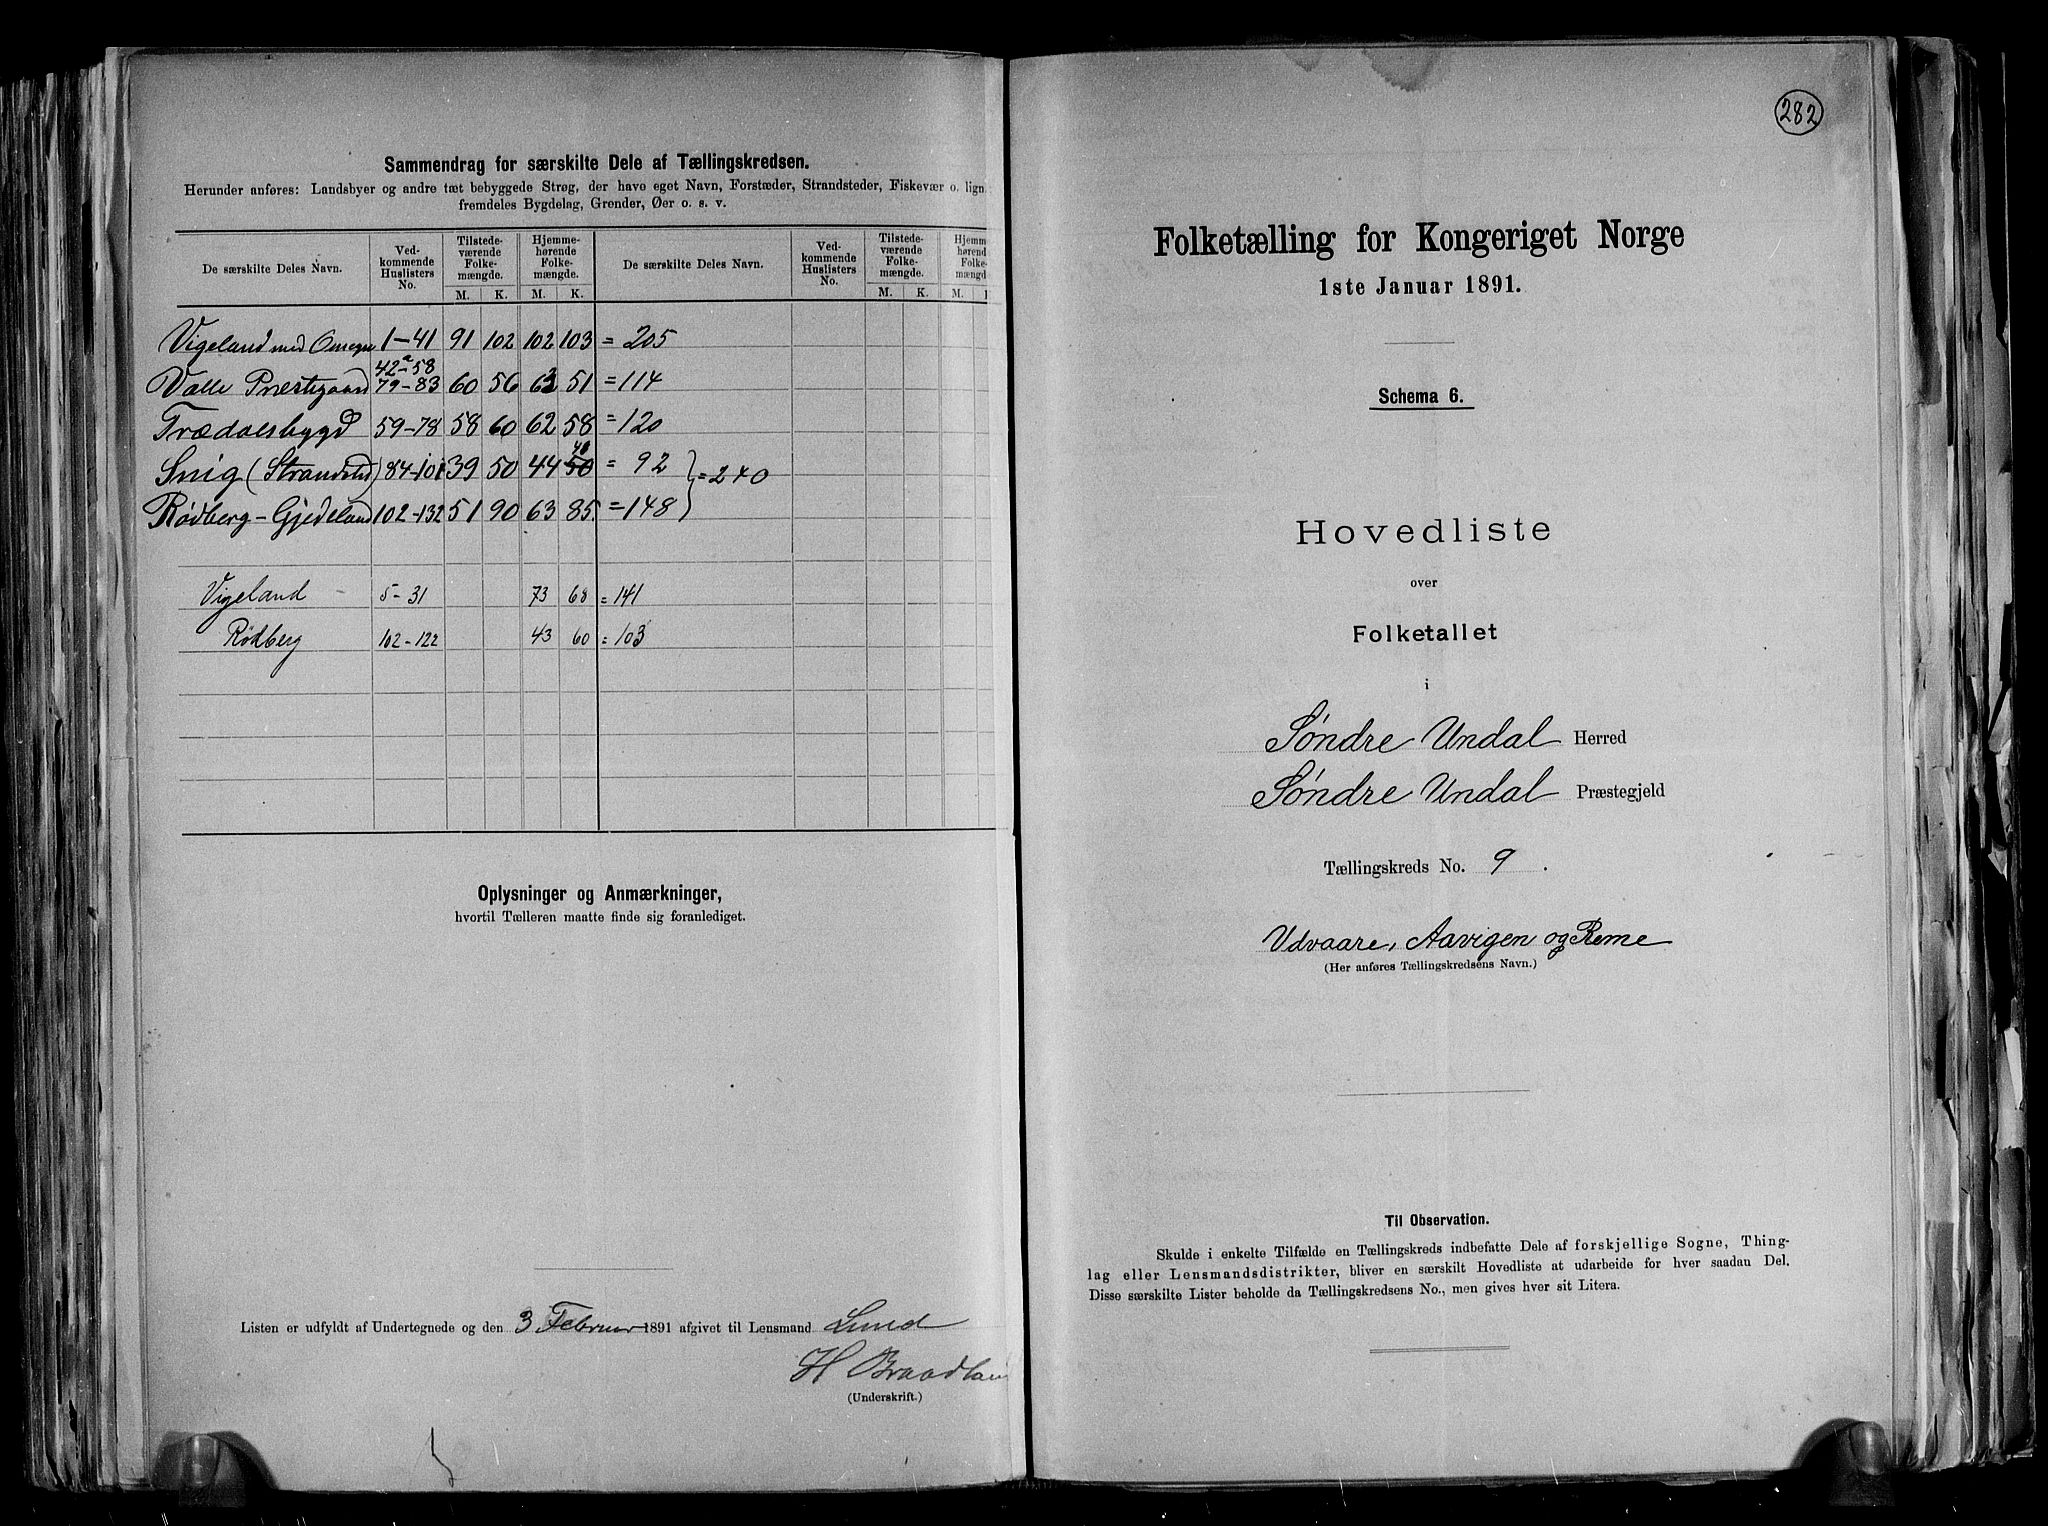 Sammendrag for særskilte Dele af Tællingskredsen.
Herunder anføres: Landsbyer og andre tæt bebyggede Strøg, der have eget Navn, Forstæder, Strandsteder, Fiskevær o. lign.
fremdeles Bygdelag, Grender, Øer o. s. v.
De særskilte Deles Navn. Ved-kommende Huslisters No. Tilstede-værende Folke-mængde. Hjemme-hørende Folke-mængde. De særskilte Deles Navn. Ved-kommende Huslisters No. Tilstede-værende Folke-mængde. Hjemm hørend Folke- mængde
M. K. M. K. M. K. M.
Vigeland med Omegn 1-41 91 102 102 103 = 205
42a-58
Valle Prestegaard 79-83 60 56 63 51 = 114
Trædalsbygd 59-78 58 60 62 58 = 120
48
Snig (Strandsted) 84-101 39 50 44 50 = 92
= 240
Rødberg-Gjedeland 102-132 51 90 63 85. = 148
Vigeland 5-31 73 68 = 141
Rødberg 102-122 43 60 = 103
Oplysninger og Anmærkninger,
hvortil Tælleren maatte finde sig foranlediget.
Listen er udfyldt af Undertegnede og den 3 Februar 1891 afgivet til Lensmand Lund
H Braadlan
(Underskrift.)
282
Folketælling for Kongeriget Norge
1ste Januar 1891.
Schema 6.
Hovedliste
over
Folketallet
i
Søndre Undal Herred
Søndre Undal Præstegjeld
Tællingskreds No. 9.
Udvaare, Aavigen og Reme
(Her anføres Tællingskredsens Navn.)
Til Observation.
Skulde i enkelte Tilfælde en Tællingskreds indbefatte Dele af forskjellige Sogne, Thing-
lag eller Lensmandsdistrikter, bliver en særskilt Hovedliste at udarbeide for hver saadan Del.
Disse særskilte Lister beholde da Tællingskredsens No., men gives hver sit Litera.